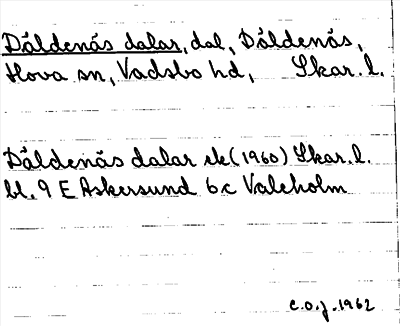 Dåldenäs dalar, dal, Dåldenäs,
Hova sn, Vadsbo hd, Skar. l.
Dåldenäs dalar ek (1960) Skar. l.
bl. 9 E Askersund 6c Valeholm
C.O.J. 1962